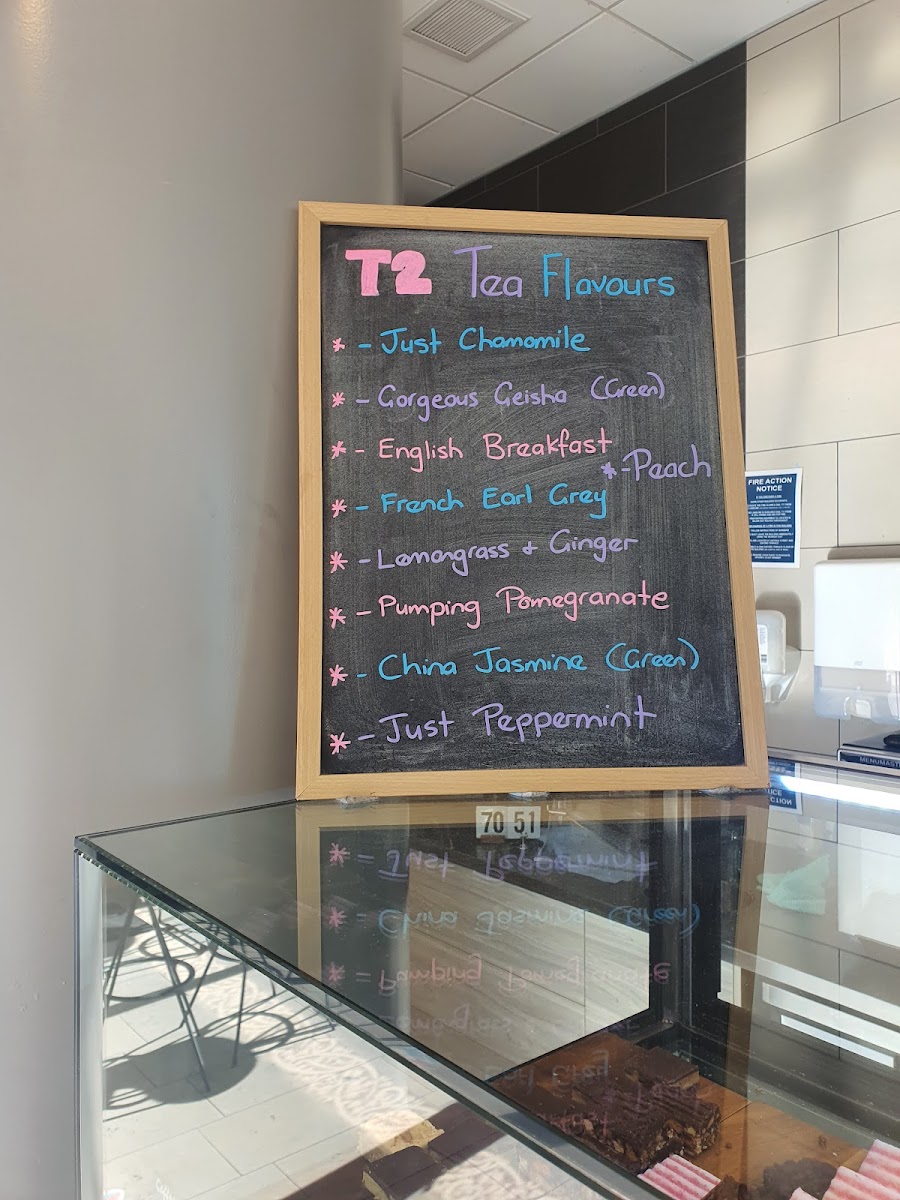 T2 Tea Flavours
* - Just Chamomile
* - Gorgeous Geisha (Green)
* - English Breakfast
* - Peach
* - French Earl Grey
* - Lemongrass + Ginger
* - Pumping Pomegranate
* - China Jasmine (Green)
* - Just Peppermint
FIRE ACTION
NOTICE
MENUMAST
70 51